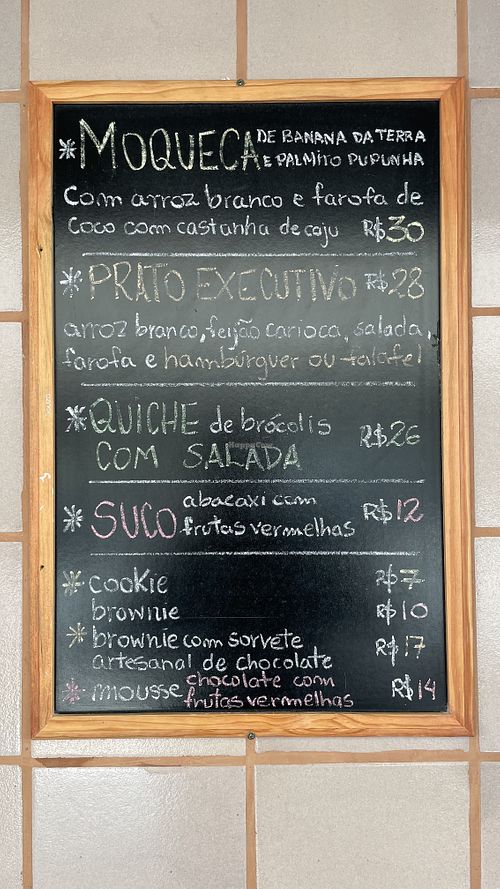 * MOQUECA DE BANANA DA TERRA
E PALMITO PUPUNHA
Com arroz branco e farofa de
coco com castanha de caju R$30
* PRATO EXECUTIVO R$28
arroz branco, feijão carioca, salada,
farofa e hambúrguer ou falafel
* QUICHE de brócolis R$26
COM SALADA
* SUCO abacaxi com
frutas vermelhas R$12
* cookie R$7
brownie R$10
* brownie com sorvete R$17
artesanal de chocolate
* mousse chocolate com R$14
frutas vermelhas